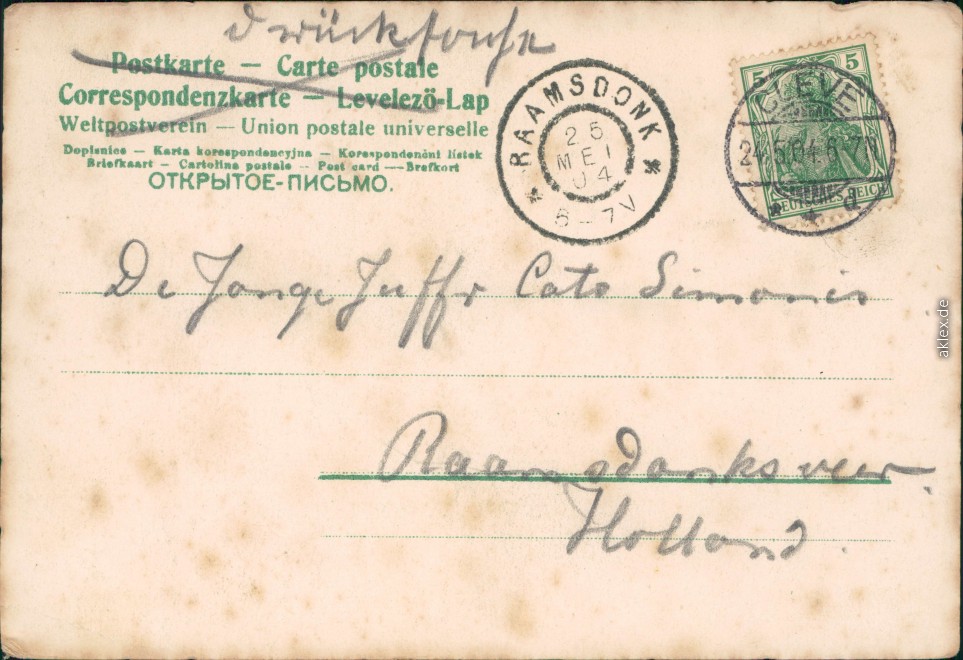 Drucksache
Postkarte — Carte postale
Correspondenzkarte — Levelező-Lap
Weltpostverein — Union postale universelle
Dopisnice — Karta korespondencyjna — Korespondenční lístek
Briefkaart — Cartolina postale — Post card — Brefkort
ОТКРЫТОЕ-ПИСЬМО.
RAAMSDONK
25
MEI
04
6-7V
5 5
CLEVE
24.5.04.6-7N
DEUTSCHES REICH
De Jonge Juffr Cato Simonis
Raamsdonksveer.
Holland.
aklex.de